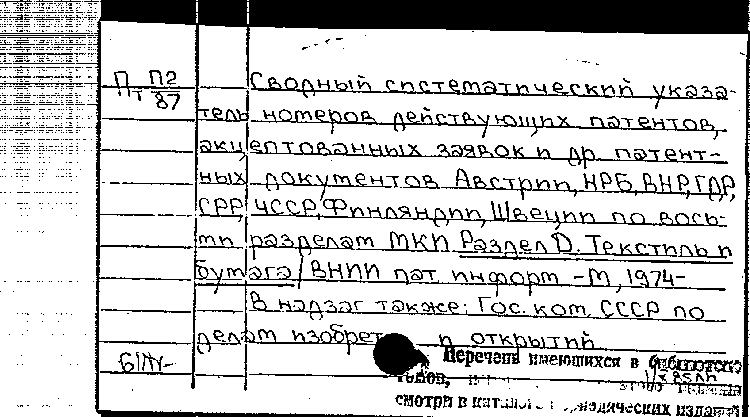 Пт П2/87
Сводный систематический указа-
тель номеров действующих патентов,
акцептованных заявок и др. патент-
ных документов Австрии, НРБ, ВНР, ГДР,
СРР, ЧССР, Финляндии, Швеции по вось-
ми разделам МКИ. Раздел D. Текстиль и
бумага / ВНИИ пат. информ. -М, 1974-
В надзаг также: Гос. ком. СССР по
делам изобрет и открытий
Перечень имеющихся в библиотеке
томов,
смотри в каталоге периодических изданий